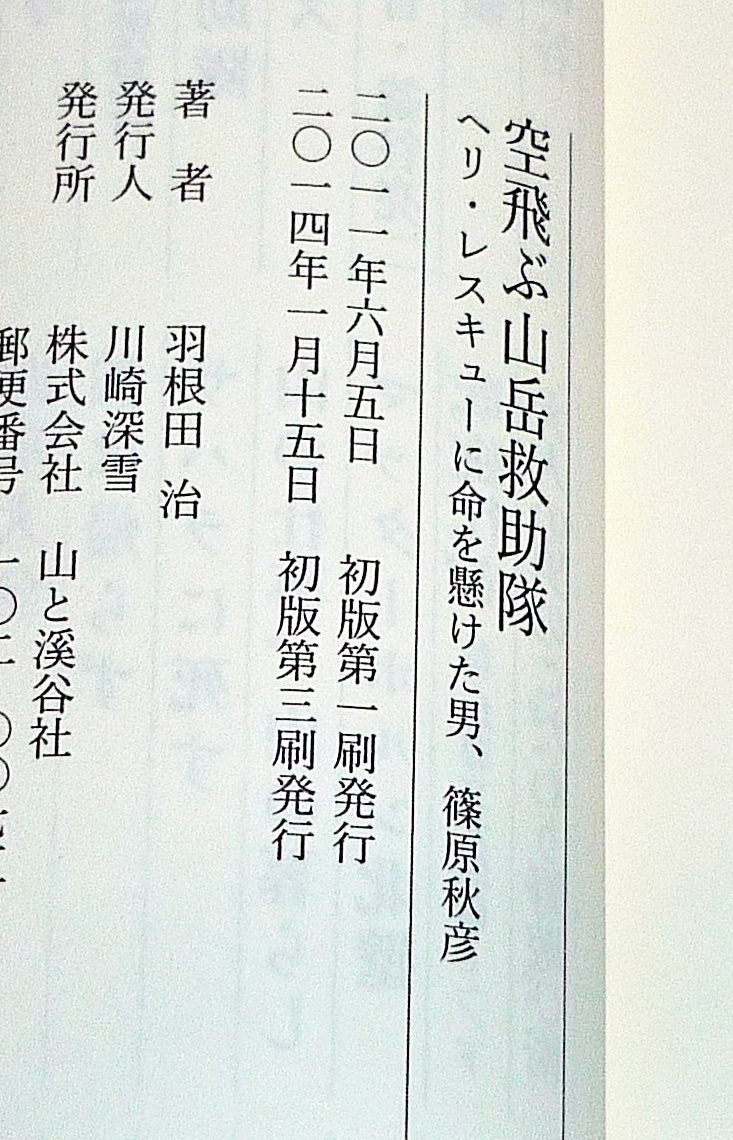 空飛ぶ山岳救助隊
ヘリ・レスキューに命を懸けた男、篠原秋彦
二〇一一年六月五日 初版第一刷発行
二〇一四年一月十五日 初版第三刷発行
著 者 羽根田 治
発行人 川崎深雪
発行所 株式会社 山と溪谷社
郵便番号